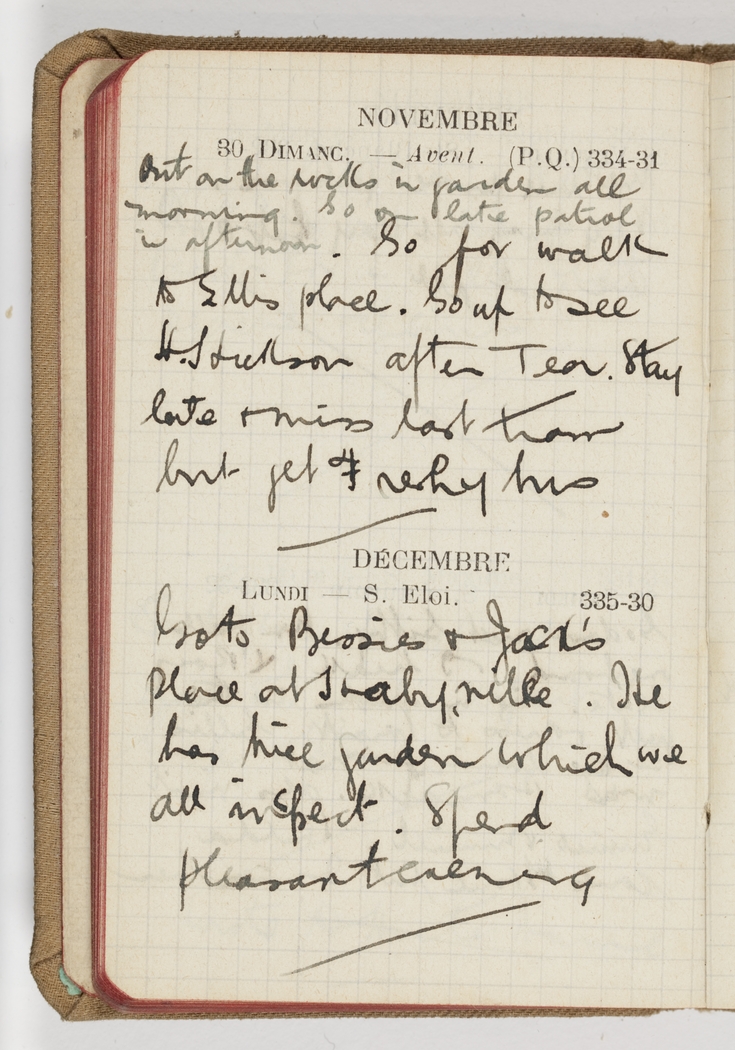 NOVEMBRE
30 DIMANC. — Avent. (P.Q.) 334-31
Out on the rocks in garden all
morning. Go on late patrol
in afternoon. Go for walk
to Ellis place. Go up to see
H. after Tea. Stay
late & miss last tram
but get bus
DÉCEMBRE
LUNDI — S. Eloi. 335-30
Go to Bessies & Jack's
place at . He
has nice garden which we
all inspect. Spend
pleasant evening